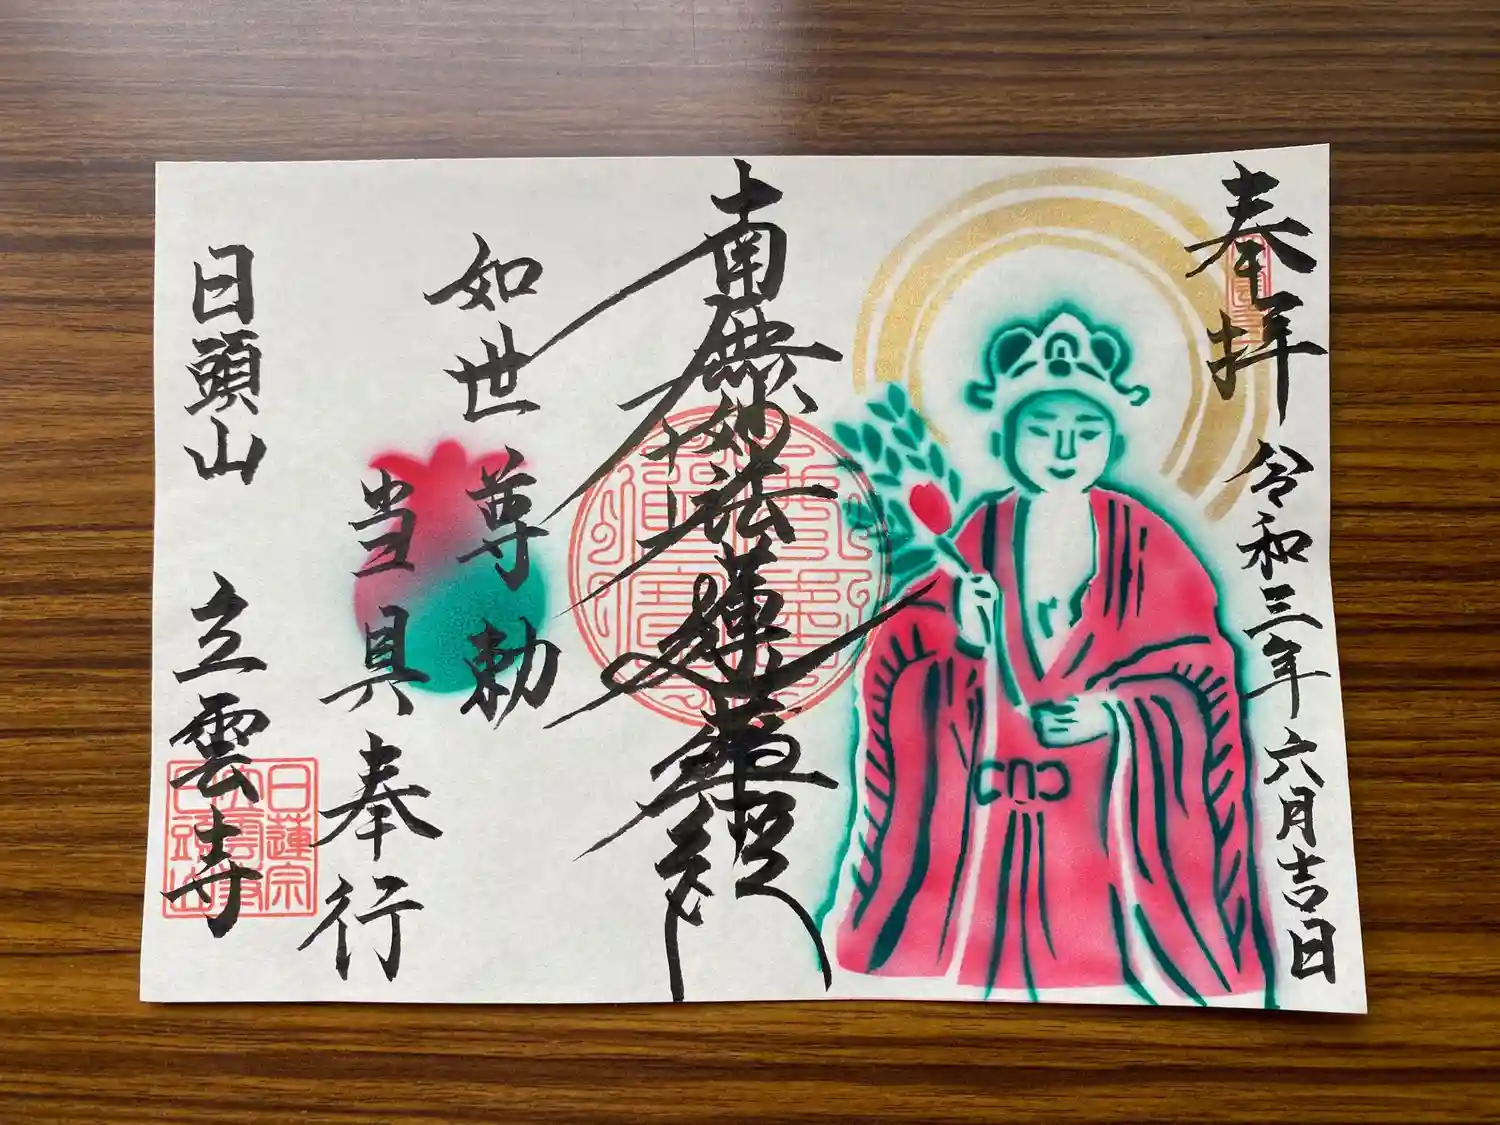 奉拝
令和三年六月吉日
南無妙法蓮華経
如世尊勅
当具奉行
日頭山
立雲寺
日蓮宗
立雲寺
日頭山